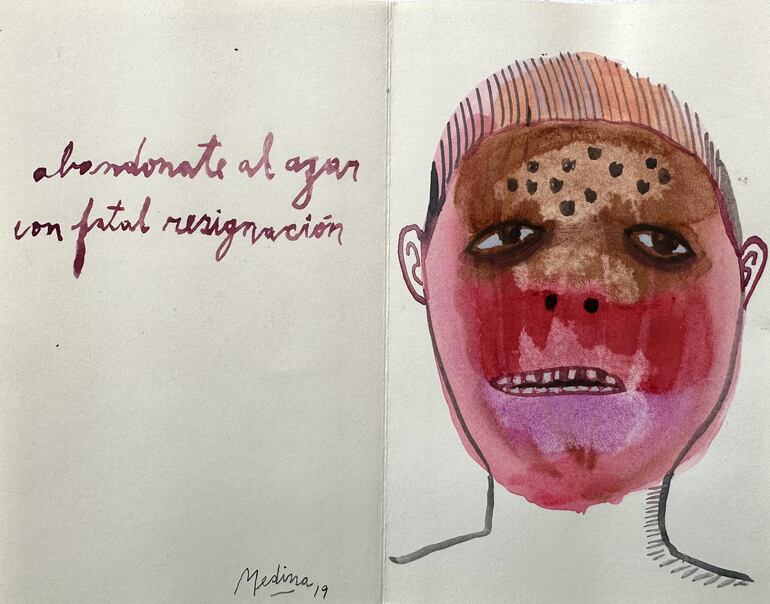 abandonate al azar
con fatal resignación
Medina 19